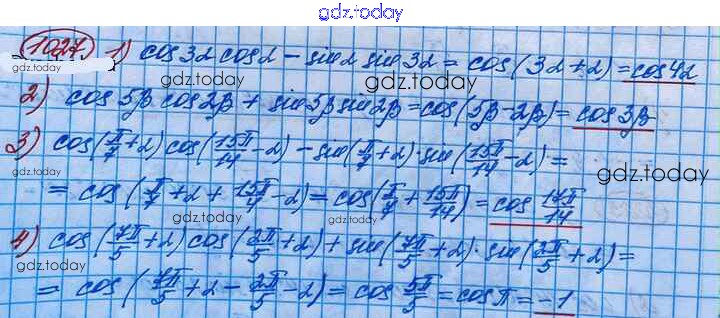 gdz.today
1027) 1) cos3α cosα − sinα sin3α = cos(3α+α) = cos4α
gdz.today
gdz.today gdz.today
2) cos5β cos2β + sin5β sin2β = cos(5β−2β) = cos3β
3) cos(π/7+α) cos(15π/14−α) − sin(π/7+α)·sin(15π/14−α) =
gdz.today
= cos(π/7+α+15π/14−α) = cos(π/7+15π/14) = cos 17π/14
gdz.today gdz.today
4) cos(7π/5+α) cos(2π/5+α) + sin(7π/5+α)·sin(2π/5+α) =
gdz.today
= cos(7π/5+α−2π/5−α) = cos 5π/5 = cosπ = −1
gdz.today gdz.today